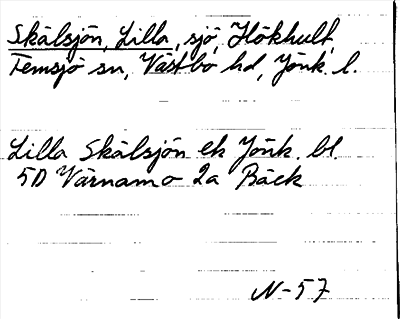 Skälsjön, Lilla, sjö, Hökhult,
Femsjö sn, Västbo hd, Jönk. l.
Lilla Skälsjön ek Jönk. bl.
5D Värnamo 2a Bäck
N-57